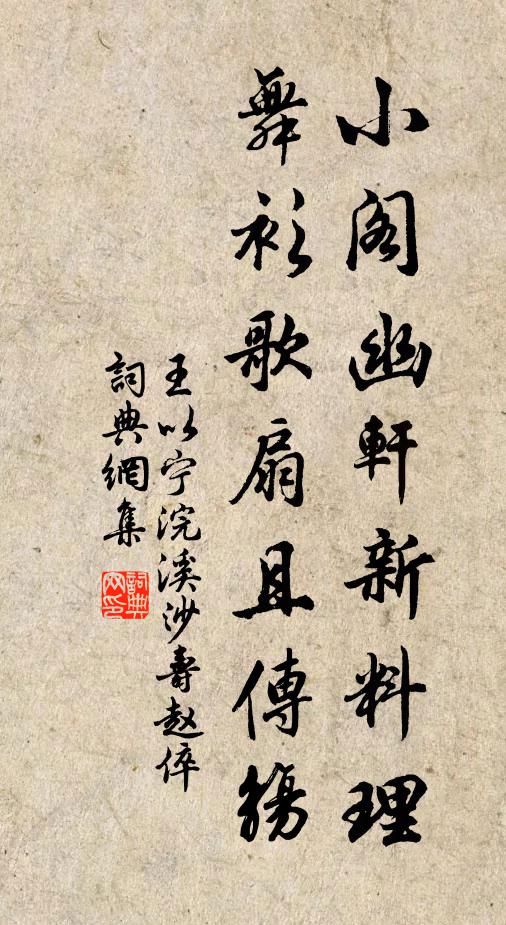 小阁幽軒新料理
舞衫歌扇且傳觴
王以宁浣溪沙壽赵倅
詞典網集
詞典网印